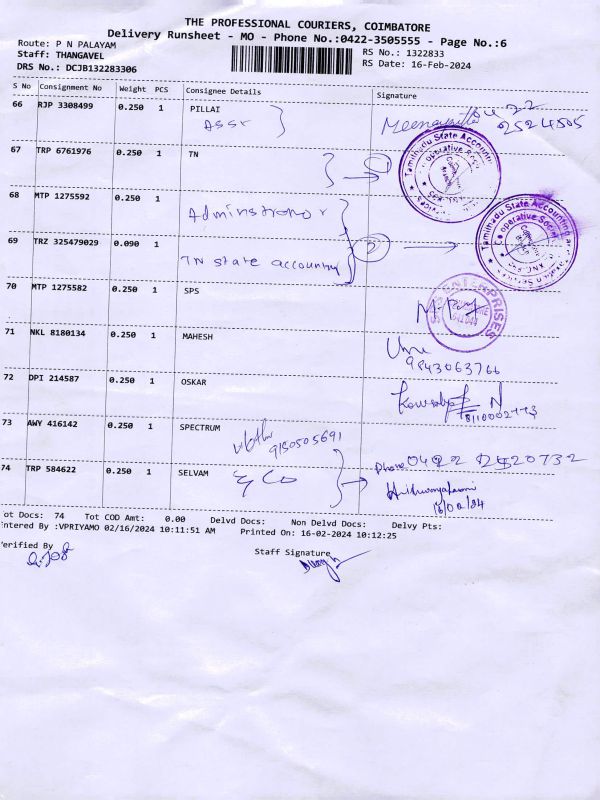 THE PROFESSIONAL COURIERS, COIMBATORE
Delivery Runsheet - MO - Phone No.:0422-3505555 - Page No.:6
Route: P N PALAYAM
Staff: THANGAVEL
DRS No.: DCJB132283306
RS No.: 1322833
RS Date: 16-Feb-2024
S No Consignment No Weight PCS Consignee Details Signature
66 RJP 3308499 0.250 1 PILLAI
Assr
2524505
67 TRP 6761976 0.250 1 TN
Tamilnadu State Accounting
Co operative
68 MTP 1275592 0.250 1
Adminstrator
Tamilnadu State Accounting and
Co operative Society
69 TRZ 325479029 0.090 1
TN state accounting
70 MTP 1275582 0.250 1 SPS
ENTERPRISES
71 NKL 8180134 0.250 1 MAHESH
9843063766
72 DPI 214587 0.250 1 OSKAR
N
73 AWY 416142 0.250 1 SPECTRUM
9150505691
74 TRP 584622 0.250 1 SELVAM
& Co
Phone 0422 2420732
16/02/24
ot Docs: 74 Tot COD Amt: 0.00 Delvd Docs: Non Delvd Docs: Delvy Pts:
ntered By :VPRIYAMO 02/16/2024 10:11:51 AM Printed On: 16-02-2024 10:12:25
erified By
Staff Signature